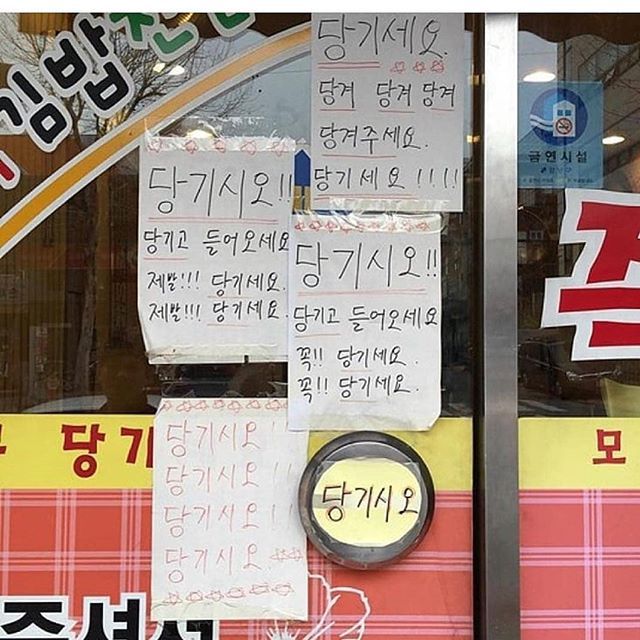 김밥천
당기세요.
당겨 당겨 당겨
당겨주세요.
당기세요 !!!!
금연시설
당기시오!!
당기고 들어오세요
제발!!! 당기세요.
제발!!! 당기세요.
당기시오!!
당기고 들어오세요
꼭!! 당기세요.
꼭!! 당기세요.
당기시오 !!
당기시오 !!
당기시오 !!
당기시오
당기시오
당기
모
주셔서